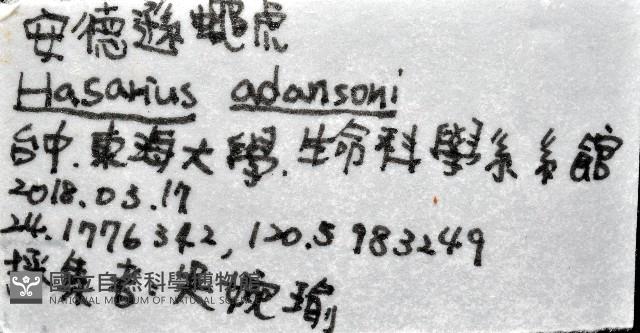 安德遜蠅虎
Hasarius adansoni
台中.東海大學.生命科學系系館
2018.03.17
24.1776342, 120.5983249
採集者
國立自然科學博物館
NATIONAL MUSEUM OF NATURAL SCIENCE